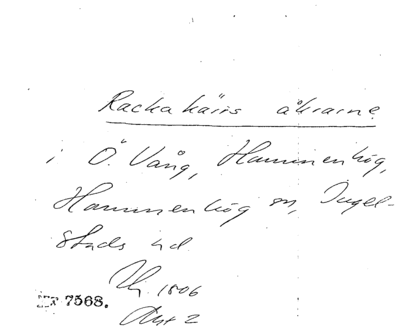 Rackakärs åkrarne
i Ö. Vång, Hammenhög,
Hammenhög sn, Ingel-
stads hd
1806
Akt 2
7568.